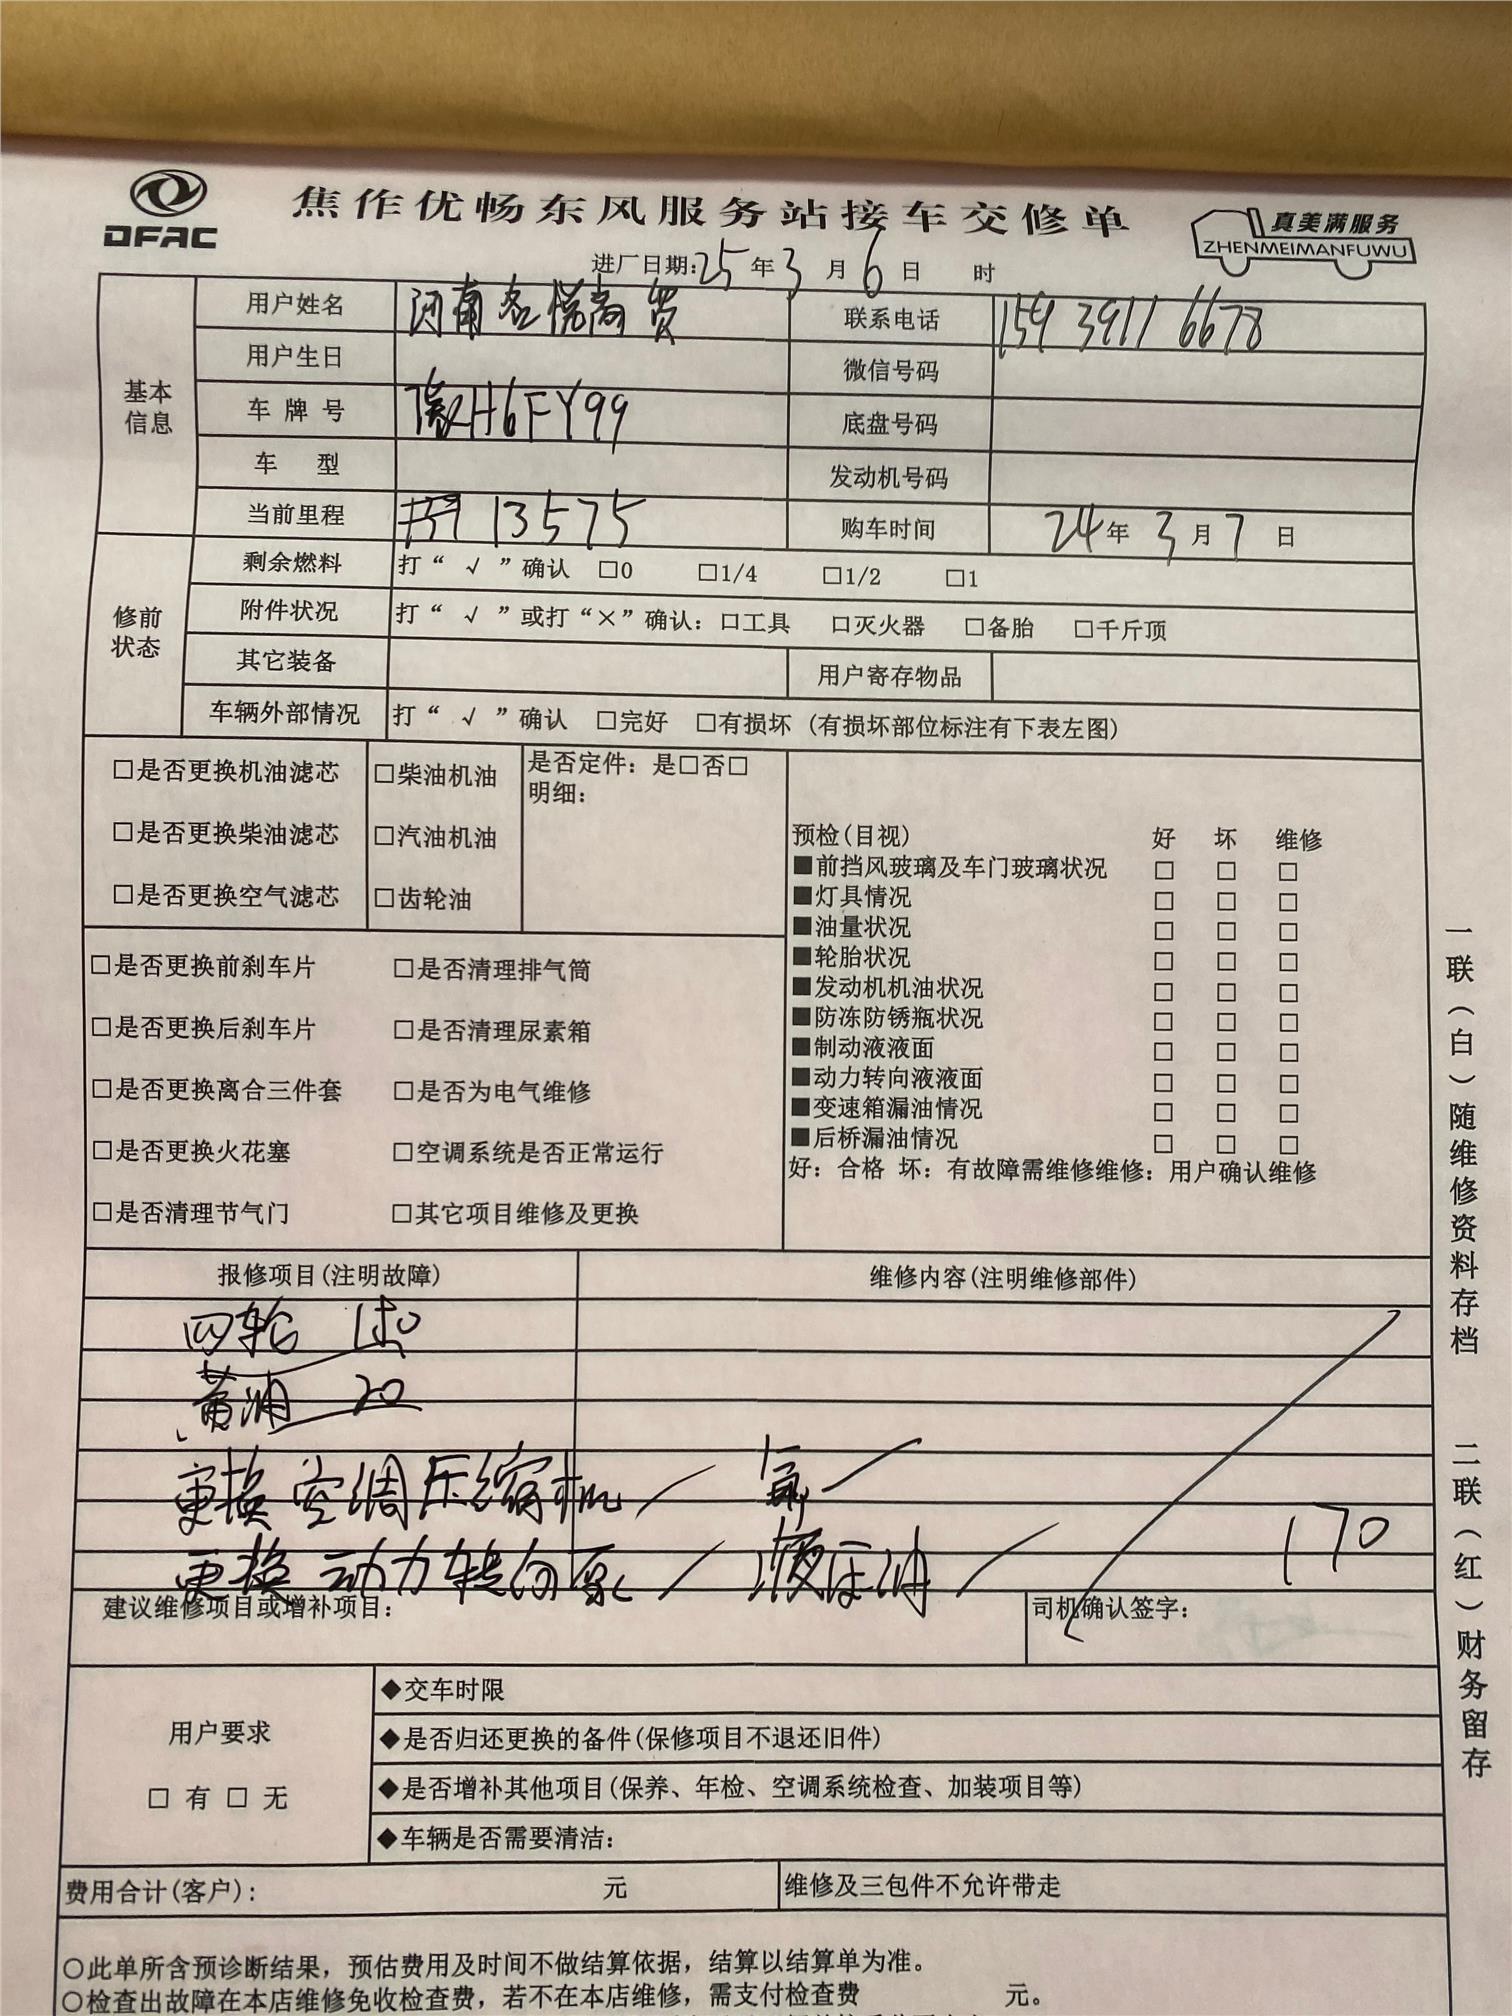 DFAC
焦作优畅东风服务站接车交修单
真美满服务
ZHENMEIMANFUWU
进厂日期:25年3月6日 时
基本信息
用户姓名 河南客悦商贸 联系电话 159 3911 6678
用户生日 微信号码
车牌号 豫H6FY99 底盘号码
车 型 发动机号码
当前里程 13575 购车时间 24年3月7日
修前状态
剩余燃料 打“ √ ”确认 □0 □1/4 □1/2 □1
附件状况 打“ √ ”或打“×”确认: □工具 □灭火器 □备胎 □千斤顶
其它装备 用户寄存物品
车辆外部情况 打“ √ ”确认 □完好 □有损坏 (有损坏部位标注有下表左图)
□是否更换机油滤芯 □柴油机油 是否定件: 是□否□
明细:
□是否更换柴油滤芯 □汽油机油
□是否更换空气滤芯 □齿轮油
□是否更换前刹车片 □是否清理排气筒
□是否更换后刹车片 □是否清理尿素箱
□是否更换离合三件套 □是否为电气维修
□是否更换火花塞 □空调系统是否正常运行
□是否清理节气门 □其它项目维修及更换
预检(目视) 好 坏 维修
■前挡风玻璃及车门玻璃状况 □ □ □
■灯具情况 □ □ □
■油量状况 □ □ □
■轮胎状况 □ □ □
■发动机机油状况 □ □ □
■防冻防锈瓶状况 □ □ □
■制动液液面 □ □ □
■动力转向液液面 □ □ □
■变速箱漏油情况 □ □ □
■后桥漏油情况 □ □ □
好: 合格 坏: 有故障需维修维修: 用户确认维修
报修项目(注明故障) 维修内容(注明维修部件)
四轮 150
黄油 20
更换空调压缩机 氟
更换动力转向泵 液压油
170
建议维修项目或增补项目: 司机确认签字:
用户要求
□ 有 □ 无
◆交车时限
◆是否归还更换的备件(保修项目不退还旧件)
◆是否增补其他项目(保养、年检、空调系统检查、加装项目等)
◆车辆是否需要清洁:
费用合计(客户): 元 维修及三包件不允许带走
○此单所含预诊断结果，预估费用及时间不做结算依据，结算以结算单为准。
○检查出故障在本店维修免收检查费，若不在本店维修，需支付检查费 元。
一联(白)随维修资料存档 二联(红)财务留存